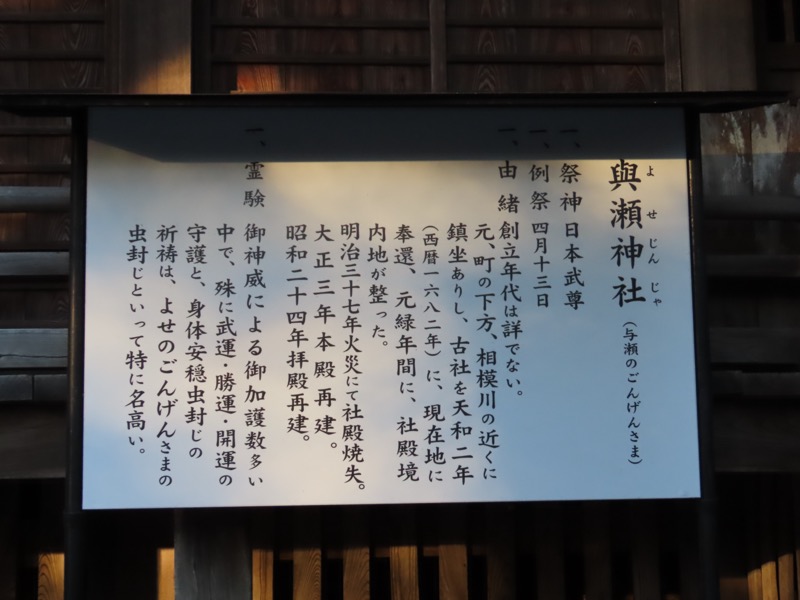 與瀬神社（与瀬のごんげんさま）
よせじんじゃ
一、祭神 日本武尊
一、例祭 四月十三日
一、由緒 創立年代は詳でない。
元、町の下方、相模川の近くに
鎮坐ありし、古社を天和二年
（西暦一六八二年）に、現在地に
奉還、元緑年間に、社殿境
内地が整った。
明治三十七年火災にて社殿焼失。
大正三年本殿再建。
昭和二十四年拝殿再建。
一、霊験 御神威による御加護数多い
中で、殊に武運・勝運・開運の
守護と、身体安穏虫封じの
祈祷は、よせのごんげんさまの
虫封じといって特に名高い。